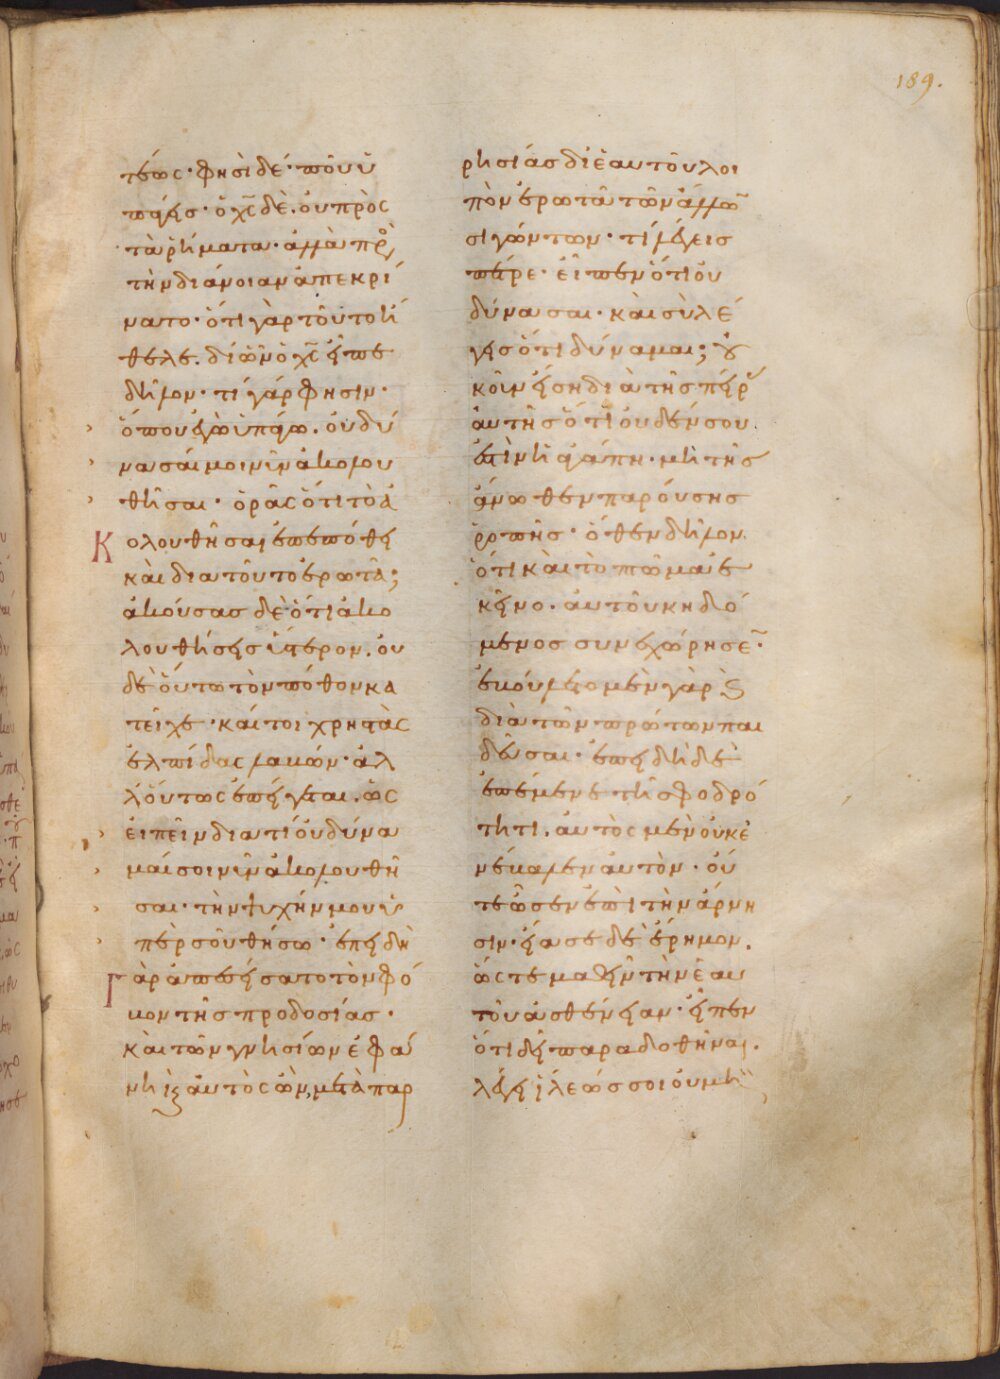 τέως· φησὶ δέ· ποῦ ὑ
πάγεις· ὁ χ̅ς̅ δὲ. οὐ πρὸς
τὰ ῥήματα· ἀλλὰ πρὸς
τὴν διάνοιαν ἀπεκρί
νατο· ὅτι γὰρ τοῦτο ἤ
θελε. δι ὧν ὁ χ̅ς̅ εἶπε
δῆλον· τί γάρ φησιν·
ὅπου ἐγὼ ὑπάγω. οὐ δύ
νασαί μοι νῦν ἀκολου
θῆσαι· ὁρᾶς ὅτι τὸ ἀ
Κολουθῆσαι ἐπεπόθει
καὶ δια τοῦτο ἐρωτᾶ;
ἀκούσας δὲ ὅτι ἀκο
λουθήσεις ὕστερον. οὐ
δὲ οὕτω τὸν πόθον κα
τεῖχε· καίτοι χρηστὰς
ἐλπίδας λαβών· ἀλ
λ οὕτως ἐπείγεται. ὡς
εἰπεῖν διατί οὐ δύνα
μαί σοι νῦν ἀκολουθῆ
σαι· τὴν ψυχήν μου ὑ
πὲρ σοῦ θήσω· ἐπειδὴ
Γὰρ ἀπεσείσατο τὸν φό
βον τῆς προδοσίας·
καὶ τῶν γνησίων ἐφά
νη εἷς αὐτὸς ὢν, μετὰ παρ
ρησίας δι ἑαυτοῦ λοι
πὸν ἐρωτᾶ τῶν ἄλλω̅
σιγώντων· τί λέγεις
πέτρε· εἶπεν ὅτι οὐ
δύνασαι· καὶ σὺ λέ
γεις ὅτι δύναμαι; οὐ
κοῦν εἴση διὰ τῆς πείρας
αὐτῆς ὅτι οὐδέν σου.
ἐστὶν ἡ ἀγάπη· μὴ τῆς
ἄνωθεν παρούσης
ῥοπῆς· ὅθεν δῆλον.
ὅτι καὶ τὸ πτῶμα ἐ
κεῖνο· αὐτοῦ κηδό
μενος συνεχώρησε̅·
ἐβούλετο μὲν γὰρ ϗ
διὰ τῶν πρώτων παι
δεῦσαι· ἐπειδὴ δὲ
ἐπέμενε τῆ σφοδρό
τητι. αὐτὸς μὲν οὐκ ἐ
νέβαλεν αὐτὸν· οὔ
τε ὦσεν ἐπὶ τὴν ἄρνη
σιν· εἴασε δὲ ἔρημον.
ὥστε μαθεῖν τὴν ἑαυ
τοῦ ἀσθένειαν· εἶπεν
ὅτι δεῖ παραδοθῆναι.
λέγει ἵλεώς σοι οὐ μὴ
189.